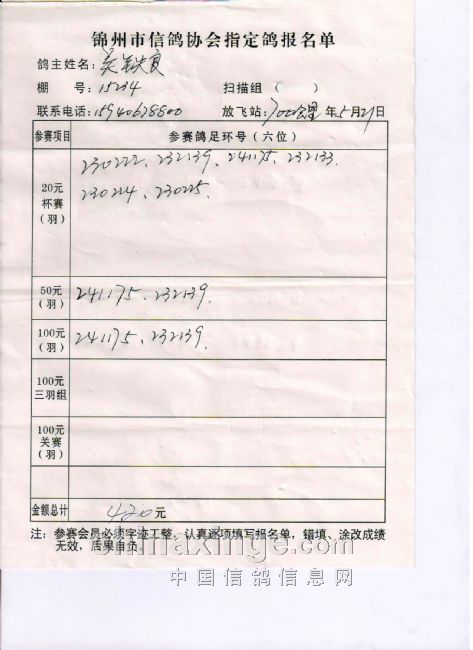 锦州市信鸽协会指定鸽报名单
鸽主姓名：吴铁良
棚　号：15234　扫描组（　）
联系电话：15940628800　放飞站：700公里 年5月29日
参赛项目　参赛鸽足环号（六位）
20元杯赛（羽）　230222、232139、241175、232133.
230224、230225.
50元（羽）　241175、232139.
100元（羽）　241175、232139.
100元三羽组
100元关赛（羽）
金额总计　420元
注：参赛会员必须字迹工整，认真逐项填写报名单，错填、涂改成绩
无效，后果自负
chinaxinge.com
中国信鸽信息网